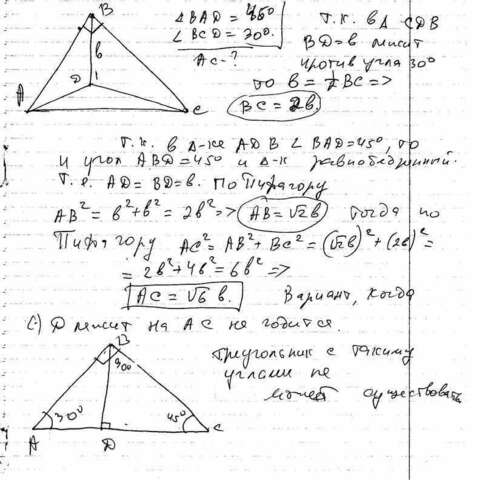 B
∠BAD = 45°
∠BCD = 30°.
AC - ?
т.к. в Δ CDB
BD = в лежит
против угла 30°
то в = 1/2 BC =>
BC = 2в.
в
D
A
C
Т.к. в Δ-ке ADB ∠BAD=45°, то
и угол ABD=45° и Δ-к равнобедренный.
Т.е. AD=BD=в. По Пифагору
AB² = в²+в² = 2в² => AB=√2в тогда по
Пифагору AC² = AB²+BC² = (√2в)²+(2в)² =
= 2в²+4в² = 6в² =>
AC = √6 в. Вариант, когда
D лежит на AC не годится.
B
90°
Треугольник с такими
углами не
может существовать
30°
45°
A
D
C